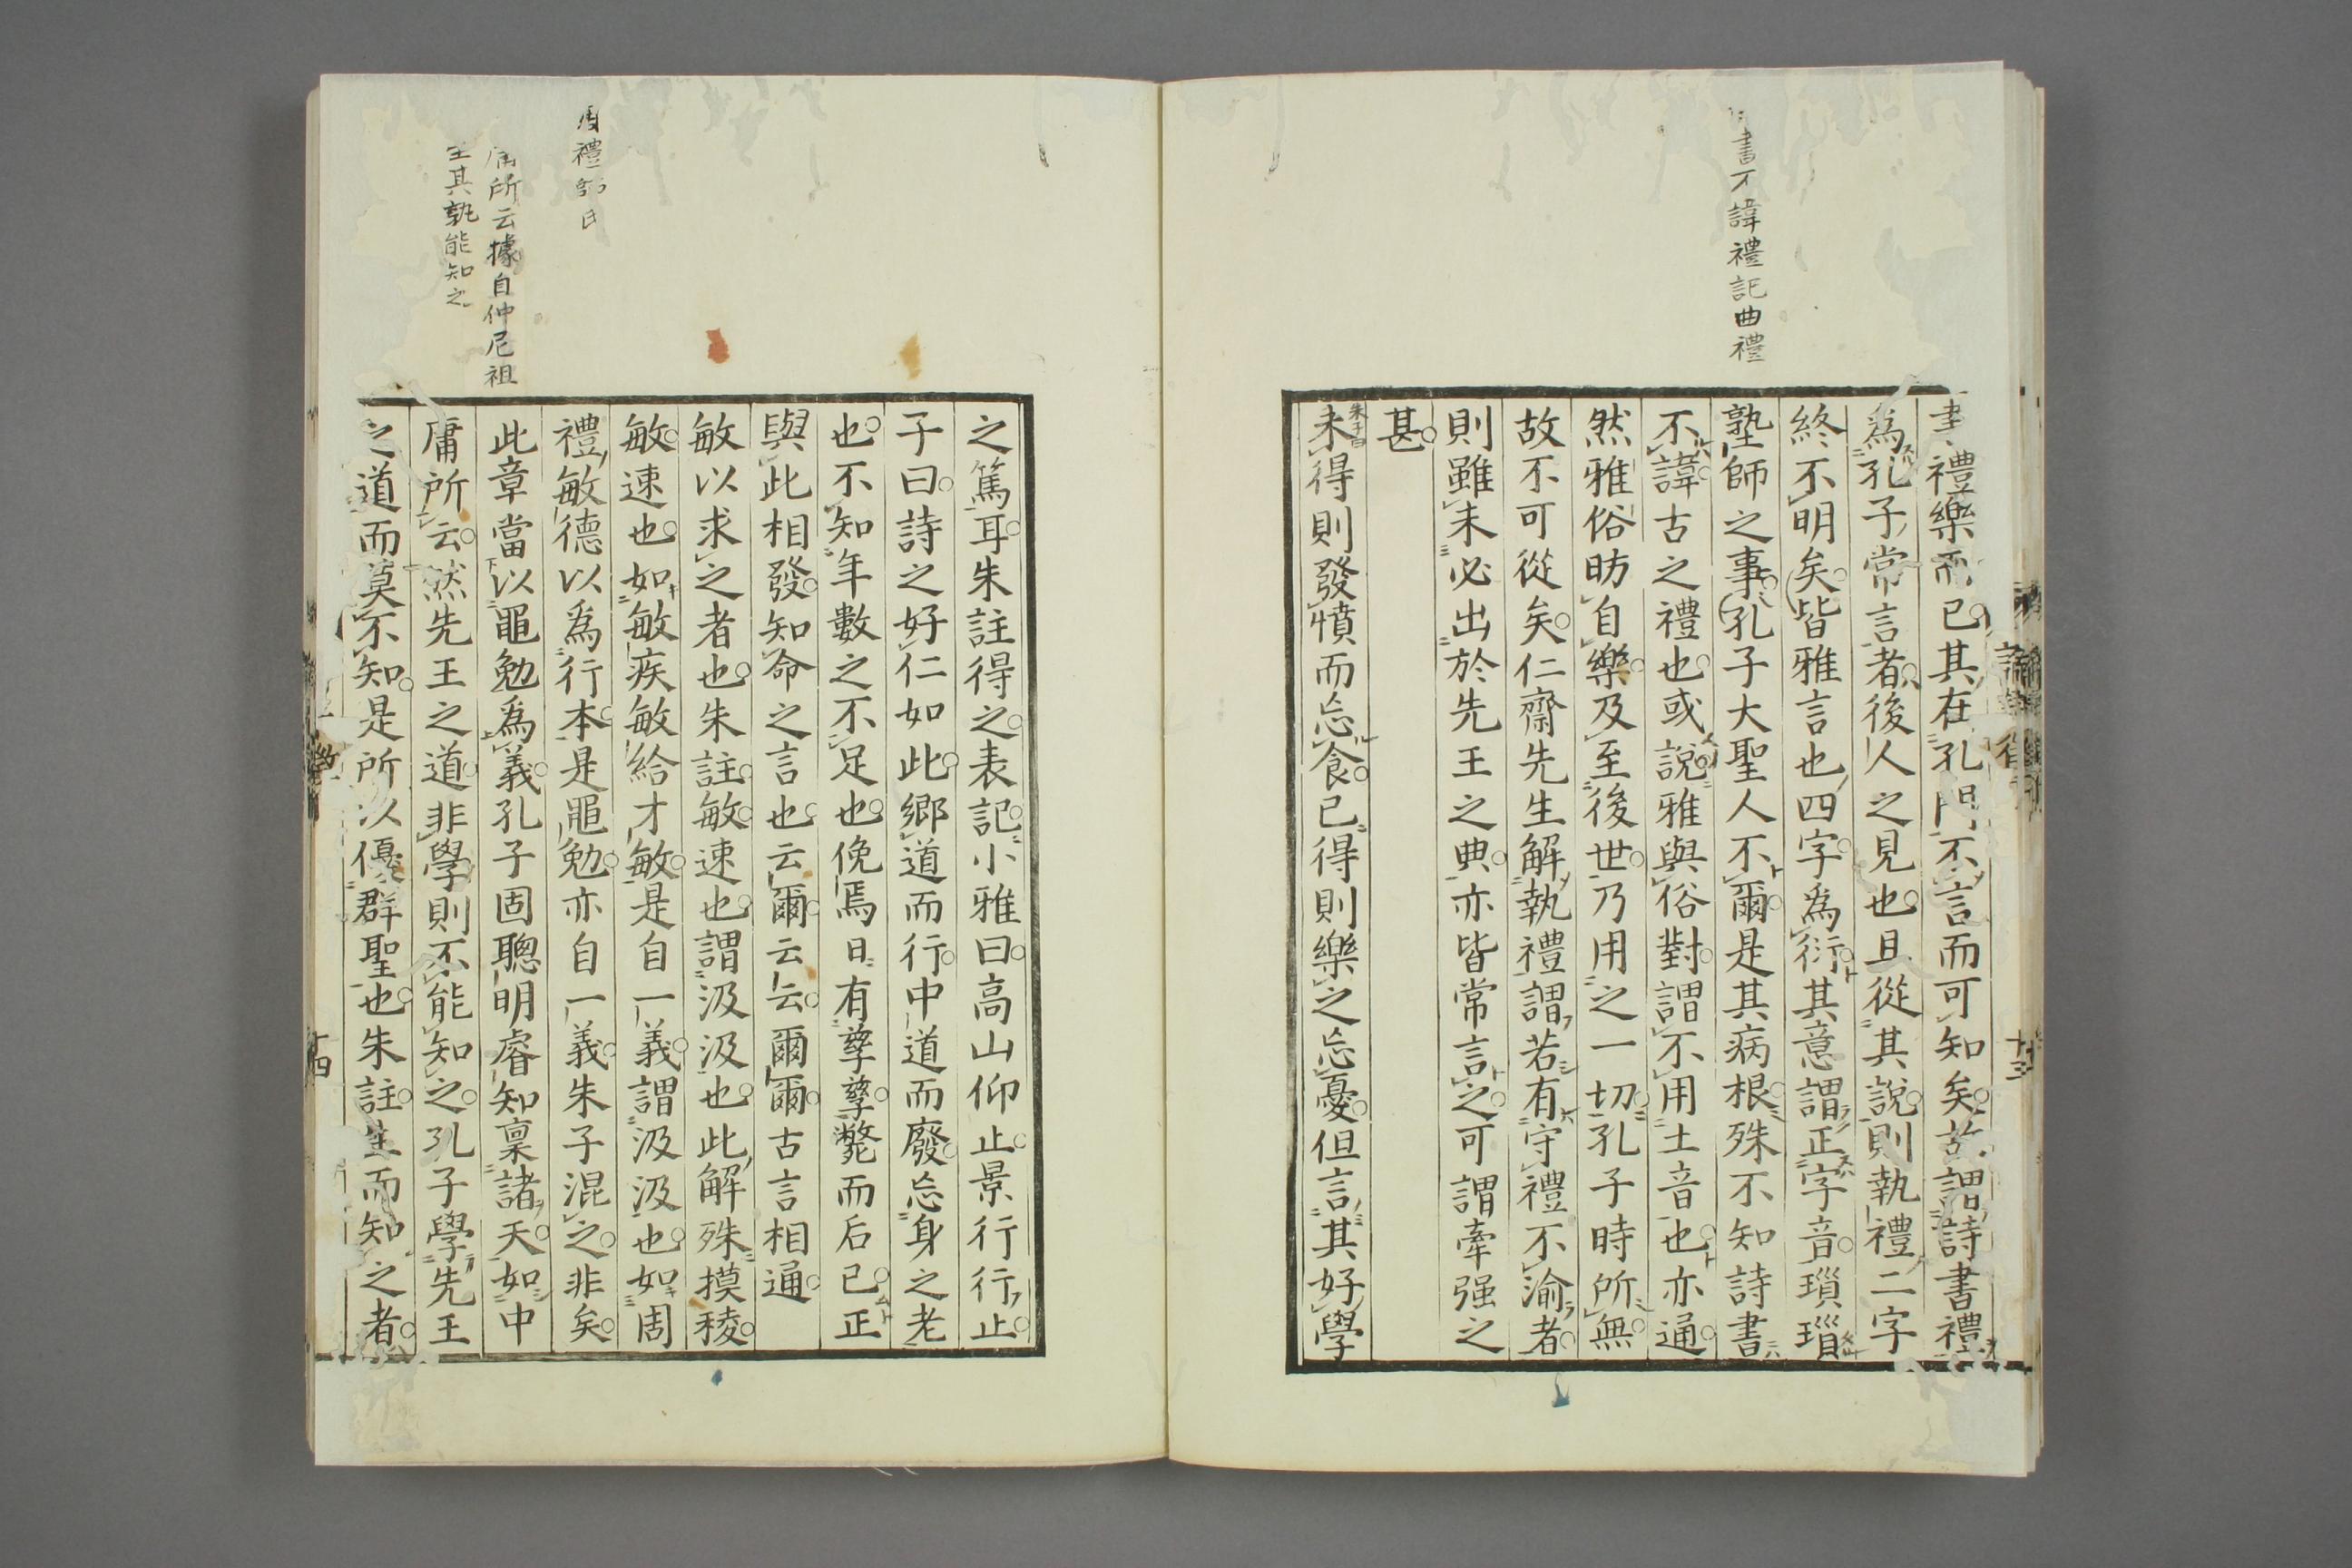 書不諱禮記曲禮
禮樂而已其在孔門不言而可知矣故謂詩書禮
爲孔子常言者後人之見也且從其說則執禮二字
終不明矣皆雅言也四字爲衍其意謂正字音瑣瑣
塾師之事孔子大聖人不爾是其病根殊不知詩書
不諱古之禮也或說雅與俗對謂不用土音也亦通
然雅俗昉自樂及至後世乃用之一切孔子時所無
故不可從矣仁齋先生解執禮謂若有守禮不渝者
則雖未必出於先王之典亦皆常言之可謂牽强之
甚
朱子曰
未得則發憤而忘食已得則樂之忘憂但言其好學
十三
周禮師氏
庸所云據自仲尼祖
至其孰能知之
之篤耳朱註得之表記小雅曰高山仰止景行行止
子曰詩之好仁如此鄉道而行中道而廢忘身之老
也不知年數之不足也俛焉日有孳孳斃而后已正
與此相發知命之言也云爾云云爾爾古言相通
敏以求之者也朱註敏速也謂汲汲也此解殊摸稜
敏速也如敏疾敏給才敏是自一義謂汲汲也如周
禮敏德以爲行本是黽勉亦自一義朱子混之非矣
此章當以黽勉爲義孔子固聰明睿知稟諸天如中
庸所云然先王之道非學則不能知之孔子學先王
之道而莫不知是所以優群聖也朱註生而知之者
十四